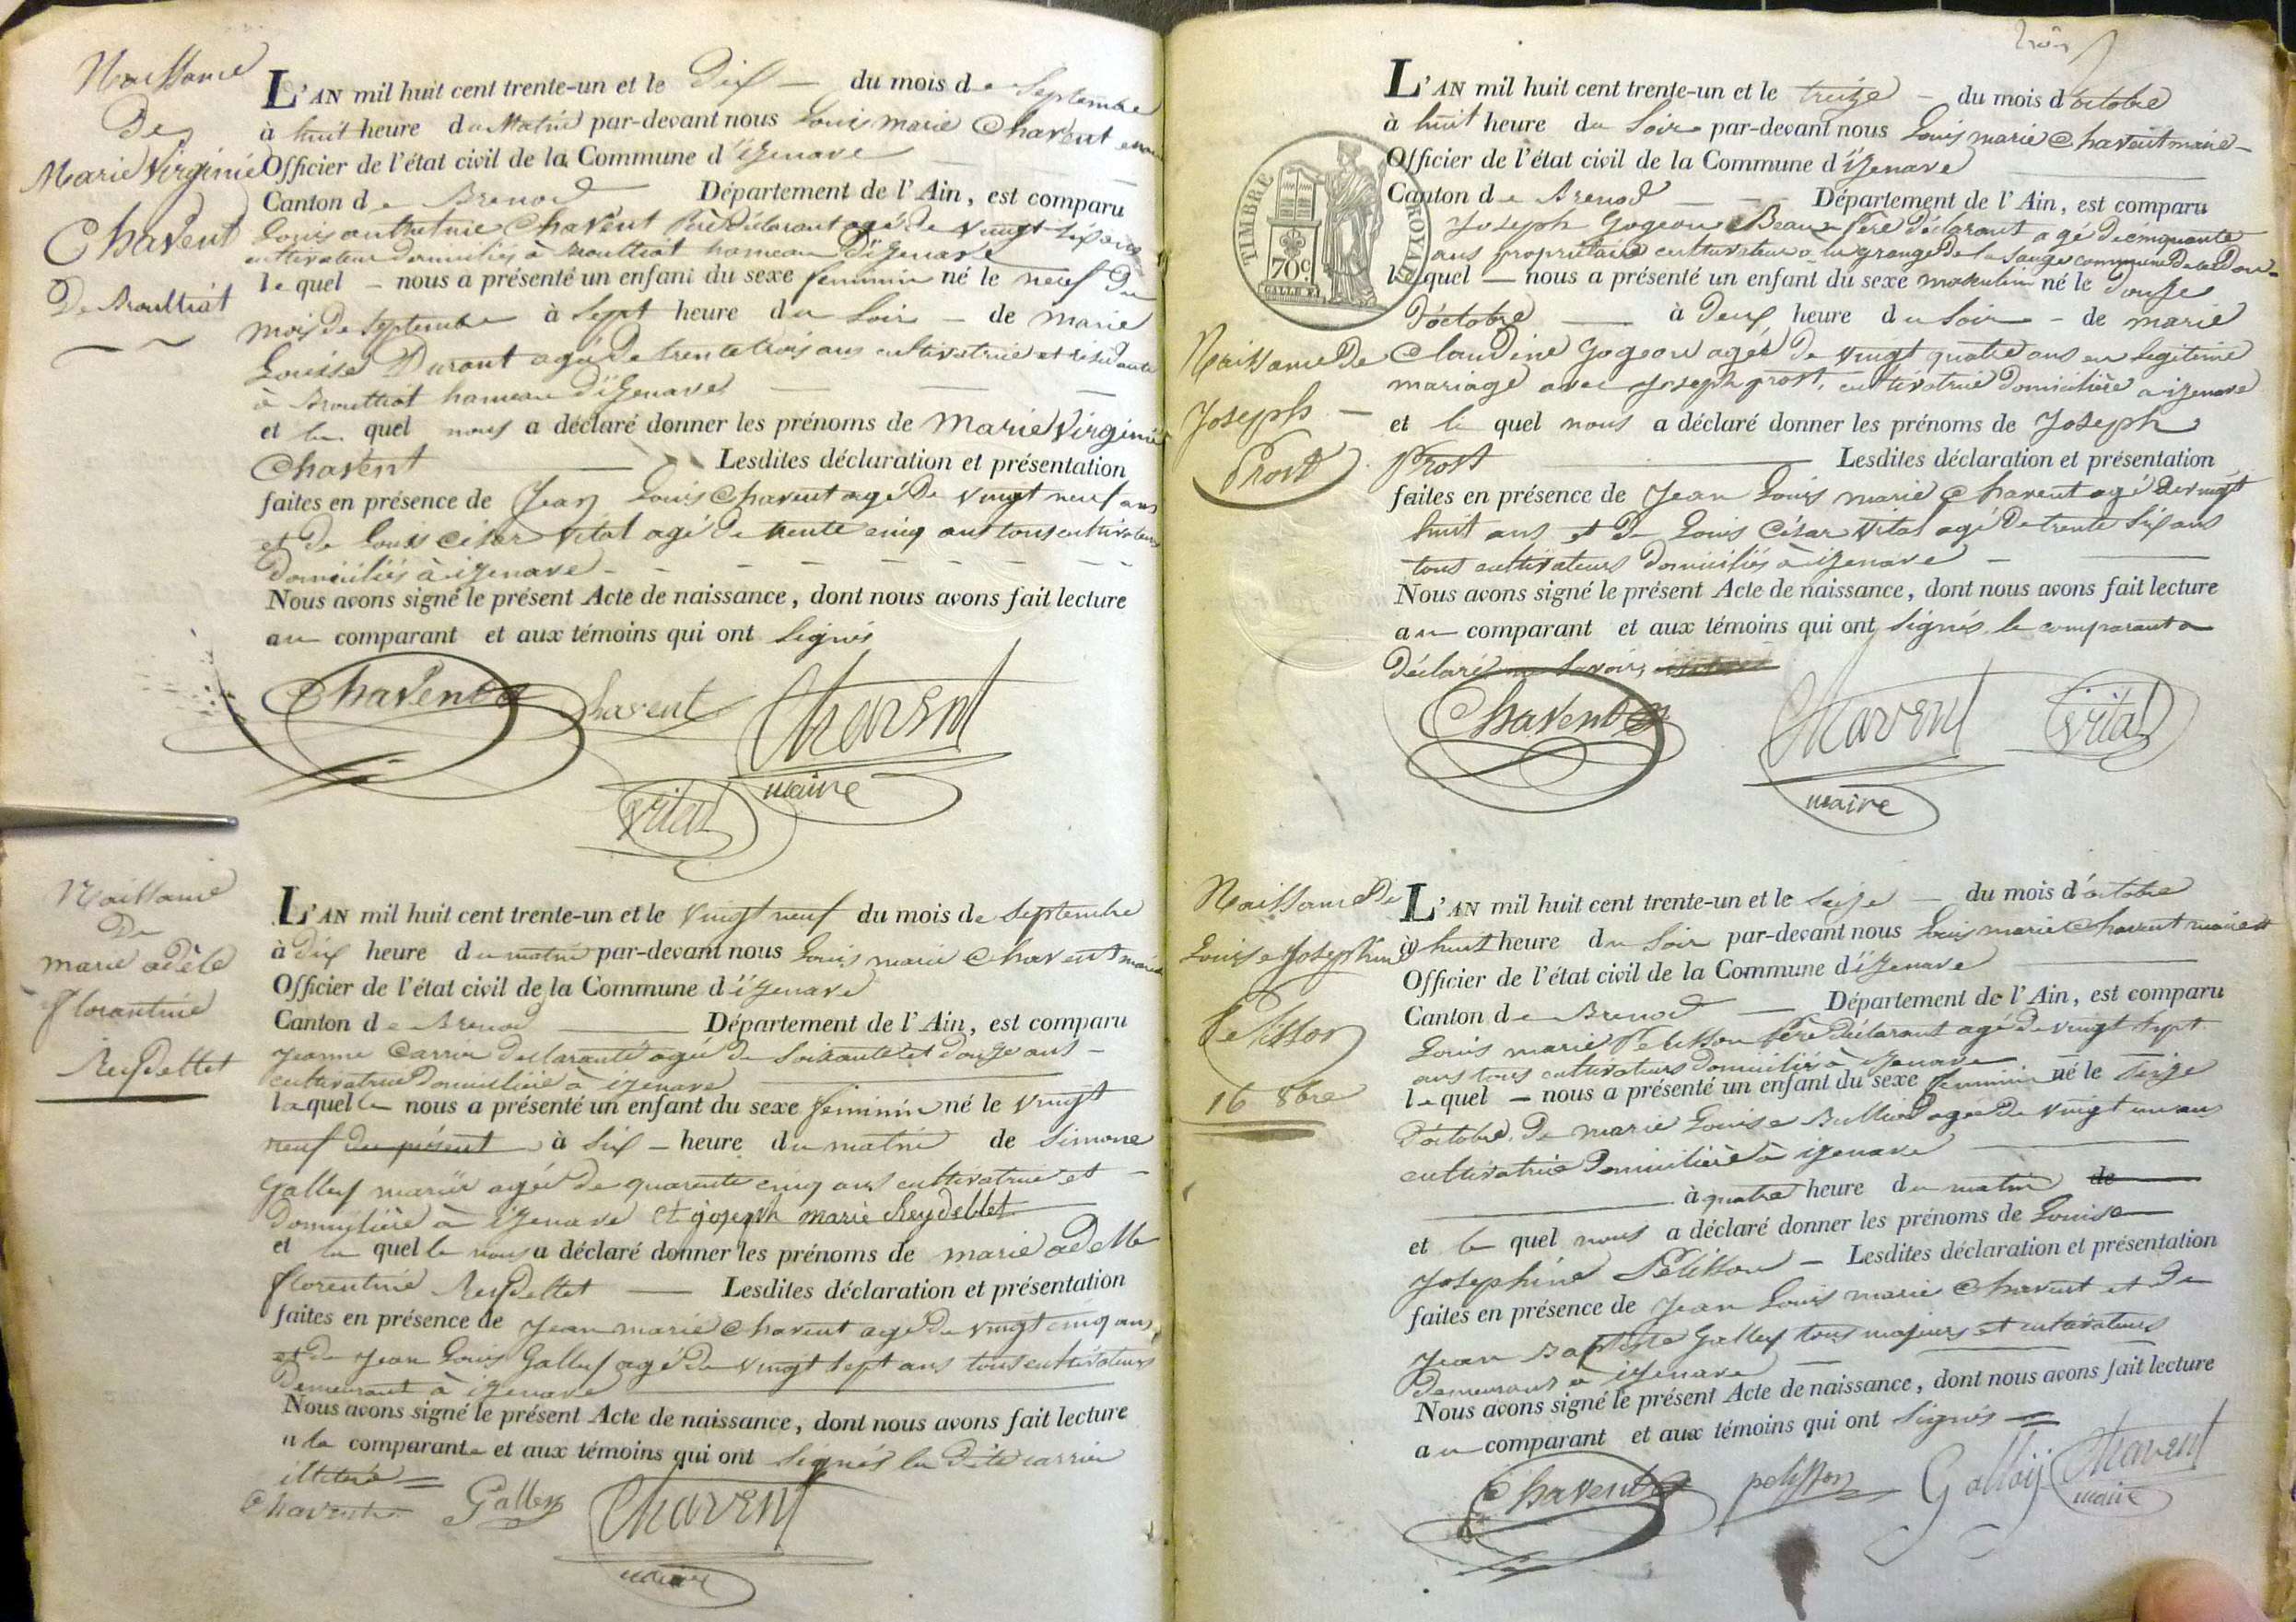 Naissance
De
Marie Virginie
Chavent
De Brouttiat
L'AN mil huit cent trente-un et le Dix — du mois de Septembre
à huit heure du Matin par-devant nous Louis marie Chavent
Officier de l'état civil de la Commune d'izenave
Canton de Brenod — Département de l'Ain, est comparu
Louis Chavent Père déclarant agé de vingt
cultivateur domiciliés à Brouttiat hameau D'izenave
lequel — nous a présenté un enfant du sexe feminin né le neuf Du
mois de Septembre à Sept heure du Soir — de marie
Louise Durant agée de trente trois ans cultivatrice et résidante
à Brouttiat hameau d'izenave
et le quel nous a déclaré donner les prénoms de Marie Virginie
Chavent — Lesdites déclaration et présentation
faites en présence de Jean Louis Chavent agé de vingt neuf ans
et de Louis César Vital agé de trente cinq ans tous cultivateurs
Domiciliés à izenave
Nous avons signé le présent Acte de naissance, dont nous avons fait lecture
au comparant et aux témoins qui ont Signés
Chavent Chavent Chavent
Vital maire
Naissance
De
marie adèle
florantine
Reydellet
L'AN mil huit cent trente-un et le Vingt neuf du mois de Septembre
à dix heure du matin par-devant nous Louis marie Chavent maire
Officier de l'état civil de la Commune d'izenave
Canton de Brenod — Département de l'Ain, est comparu
Jeanne Carrier declarante agée de Soixante et douze ans —
cultivatrice Domiciliée à izenave
laquelle nous a présenté un enfant du sexe feminin né le vingt
neuf du présent à Six — heure du matin de Simone
Galley mariée agée de quarante cinq ans cultivatrice et —
domicilière à izenave et joseph marie Reydellet
et la quelle nous a déclaré donner les prénoms de marie adelle
florentine Reydellet — Lesdites déclaration et présentation
faites en présence de Jean marie Chavent agé de vingt cinq ans
et de Jean Louis Galley agé de vingt Sept ans tous cultivateurs
Demeurant à izenave
Nous avons signé le présent Acte de naissance, dont nous avons fait lecture
à la comparante et aux témoins qui ont Signés la Dite carrier
illiterée =
Chavent Galley Chavent
maire
trois
TIMBRE ROYAL
70c
L'AN mil huit cent trente-un et le treize — du mois d'octobre
à huit heure du Soir par-devant nous Louis marie Chavent maire —
Officier de l'état civil de la Commune d'izenave
Canton de Brenod — Département de l'Ain, est comparu
Joseph Gogeon Beau père déclarant agé de cinquante
ans propriétaire cultivateur a la grange de la Sauge commune de
lequel — nous a présenté un enfant du sexe masculin né le douze
D'octobre — à deux heure du Soir — de marie
Naissance De
Joseph —
Prost
Claudine Gogeon agée de vingt quatre ans en legitime
mariage avec Joseph prost, cultivatrice domicilière a izenave
et le quel nous a déclaré donner les prénoms de Joseph
Prost — Lesdites déclaration et présentation
faites en présence de Jean Louis marie Chavent agé de vingt
huit ans et de Louis César Vital agé de trente Six ans
tous cultivateurs domiciliés à izenave —
Nous avons signé le présent Acte de naissance, dont nous avons fait lecture
au comparant et aux témoins qui ont Signés le comparant a
Déclaré ne Savoir
Chavent Chavent Vital
maire
Naissance De
Louise Josephine
Pelisson
16 8bre
L'AN mil huit cent trente-un et le Seize — du mois d'octobre
à huit heure du Soir par-devant nous Louis marie Chavent maire
Officier de l'état civil de la Commune d'izenave
Canton de Brenod — Département de l'Ain, est comparu
Louis marie Pelisson Père déclarant agé de vingt Sept
ans tous cultivateurs domiciliés à izenave
lequel — nous a présenté un enfant du sexe feminin né le Seize
D'octobre De marie Louise agée de vingt un ans
cultivatrice domicilière à izenave
à quatre heure du matin de
et le quel nous a déclaré donner les prénoms de Louise
Josephine Pelisson — Lesdites déclaration et présentation
faites en présence de Jean Louis marie Chavent et de
Jean Baptiste Galley tous majeurs et cultivateurs
demeurans a izenave
Nous avons signé le présent Acte de naissance, dont nous avons fait lecture
au comparant et aux témoins qui ont Signés =
Chavent pelisson Galley Chavent
maire